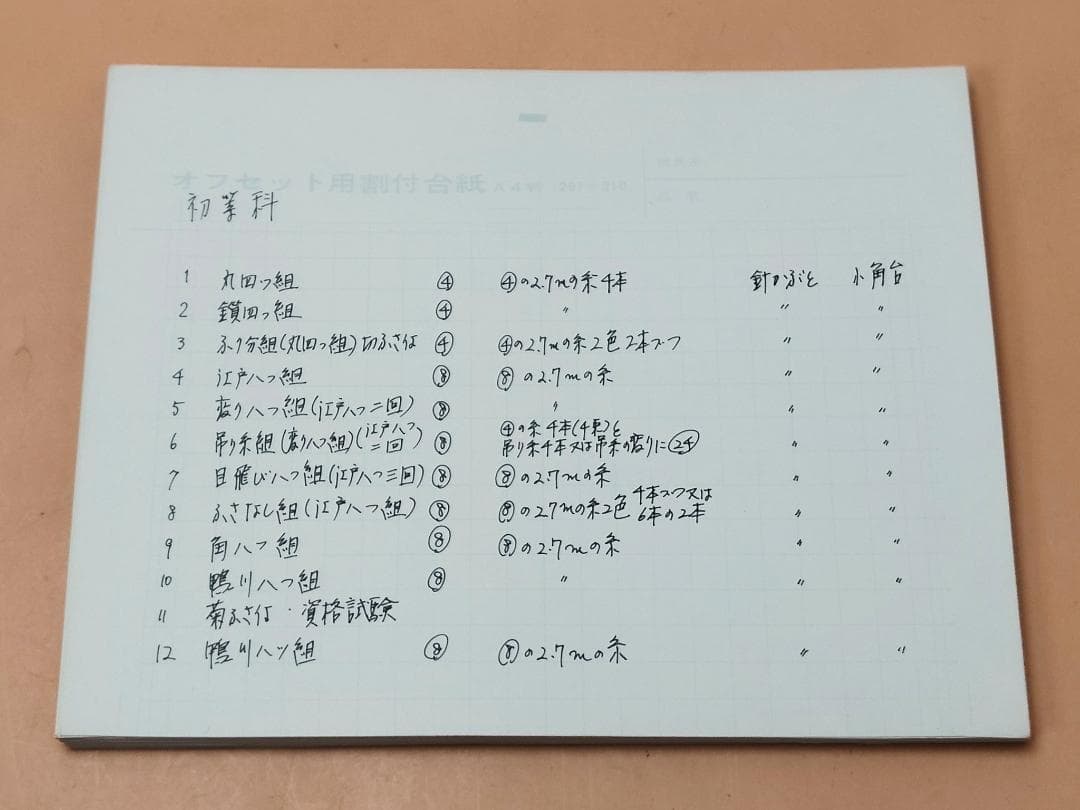 オフセット用割付台紙
初等科
1 丸四つ組 ④ ④の2.7mの糸4本 針かぶと 小角台
2 鎖四つ組 ④ 〃 〃 〃
3 ふり分組(丸四つ組)切ふさ付 ④ ④の2.7mの糸2色2本ズツ 〃 〃
4 江戸八つ組 ⑧ ⑧の2.7mの糸 〃 〃
5 変り八つ組(江戸八つ二回) ⑧ 〃 〃 〃
6 吊り糸組(変り八つ組)(江戸八つ二回) ⑧ ④の糸4本(4束)と吊り糸4本又は吊糸の変りに㉔ 〃 〃
7 目飛び八つ組(江戸八つ三回) ⑧ ⑧の2.7mの糸 〃 〃
8 ふさなし組(江戸八つ組) ⑧ ⑧の2.7mの糸2色 4本ズツ又は6本の2本 〃 〃
9 角八つ組 ⑧ ⑧の2.7mの糸 〃 〃
10 鴨川八つ組 ⑧ 〃 〃 〃
11 菊ふさ付・資格試験
12 鴨川八ツ組 ⑧ ⑧の2.7mの糸 〃 〃